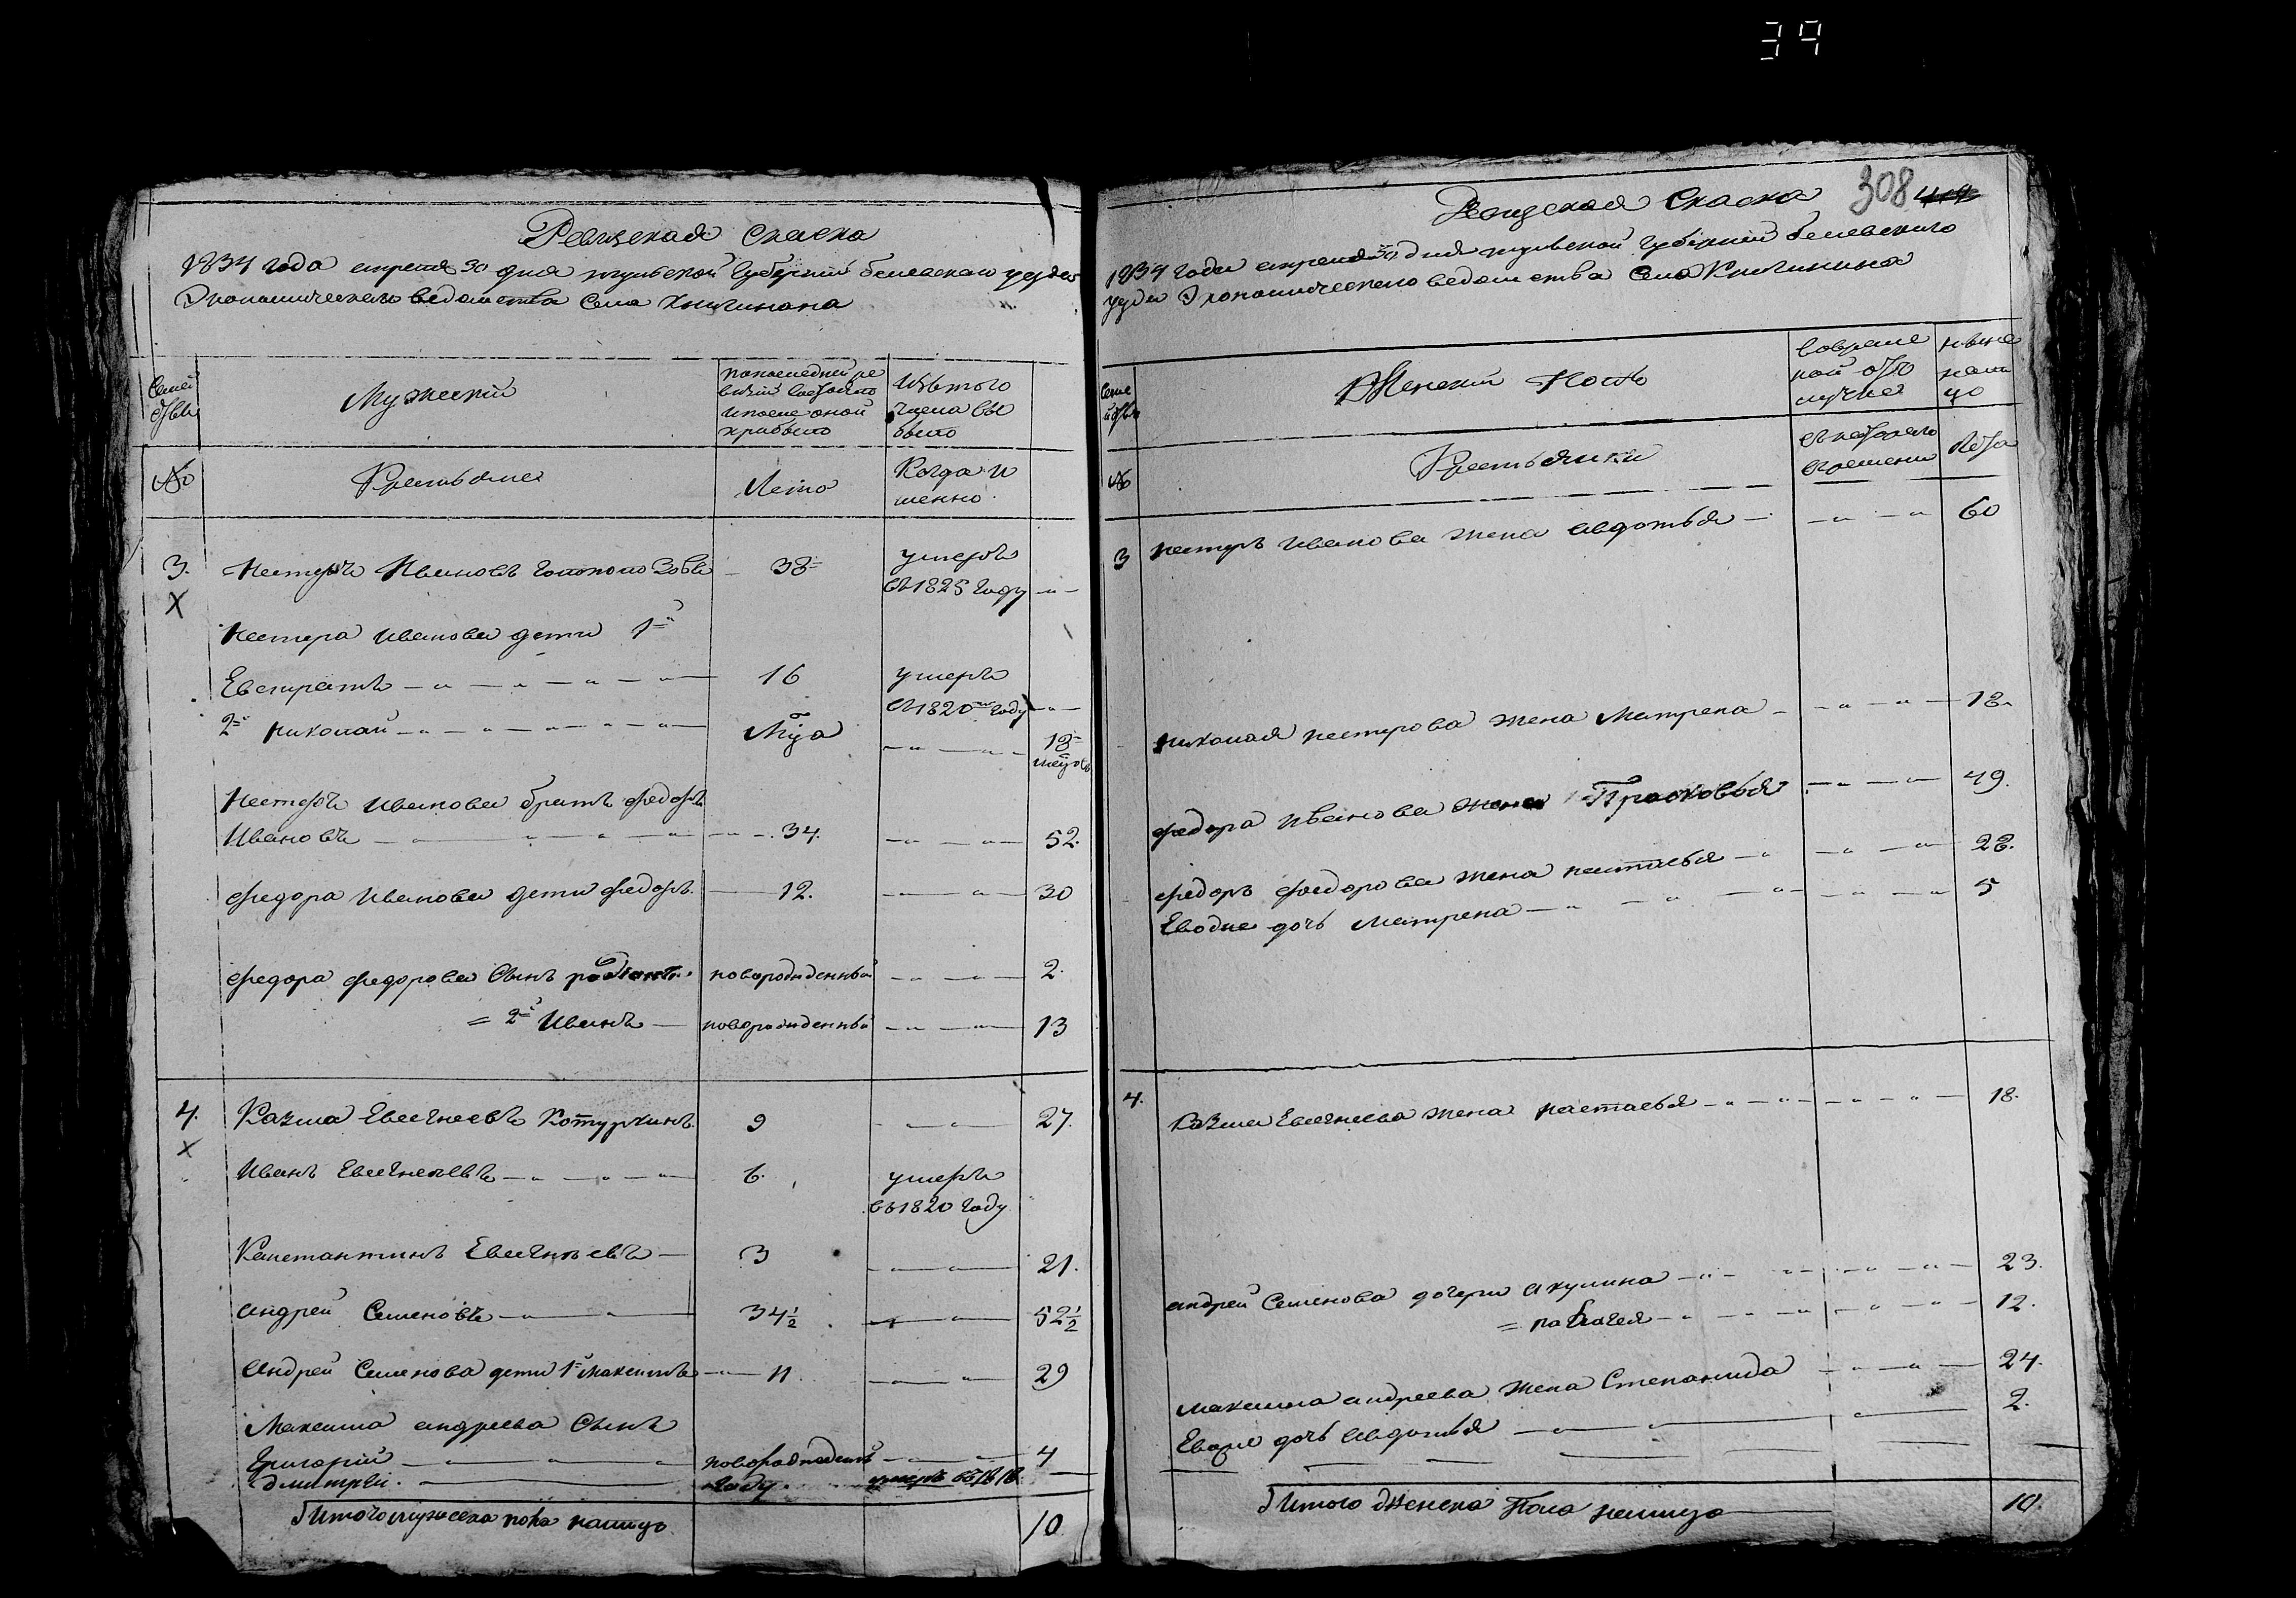 39
Ревизская скаска
1834 года апреля 30 дня тульской губернии белевскаго уезда
Экономическаго ведомства села
Семей
Мужеский
По последней ре
визии состояло
и после оной
прибыло
Изъ того
числа вы
было
№
Крестьяне
Лета
Когда и
менно
3. Нестеръ Ивановъ 38 умеръ
въ 1825 году
Нестера Иванова дети 1й
Евстратъ 16 умеръ
въ 1820 году
2й Николай 18
Нестера Иванова братъ Федоръ
Ивановъ 34. 52.
Федора Иванова дети Федоръ 12. 30
Федора Федорова сынъ новорожденный 2.
= 2й Иванъ новорожденный 13
4. Казма Евсегнеевъ Котуркинъ 9 27.
Иванъ Евсегнеевъ 6. умеръ
въ 1820 году
Константинъ Евсегнеевъ 3 21.
Андрей Семеновъ 34½ 52½
Андрей Семенова дети 1й Максимъ 11 29
Максима андреева Сынъ
Григорий 4
Дмитрей. году умеръ въ 1818
Итого мужеска пола налицо 10
308
Ревизская Скаска
1834 года апреля 30 дня тульской губернии белевскаго
уезда Экономическаго ведомства Села
Женский полъ
во време
ной отлу
чке
ныне
нали
цо
№
Крестьянки
съ котораго
времени
Лета
3 Нестеръ Иванова жена Авдотья 60
Николая Нестерова жена Матрена 18.
Федора Иванова жена Прасковья 49.
Федоръ Федорова жена Настасья 28.
Ево дочь Матрена 5
4. Казма Евсегнеева жена Настасья 18.
андрей Семенова дочери Акулина 23.
= 12.
Максима андреева жена Степанида 24.
Ево дочь Авдотья 2.
Итого женска пола налицо 10.